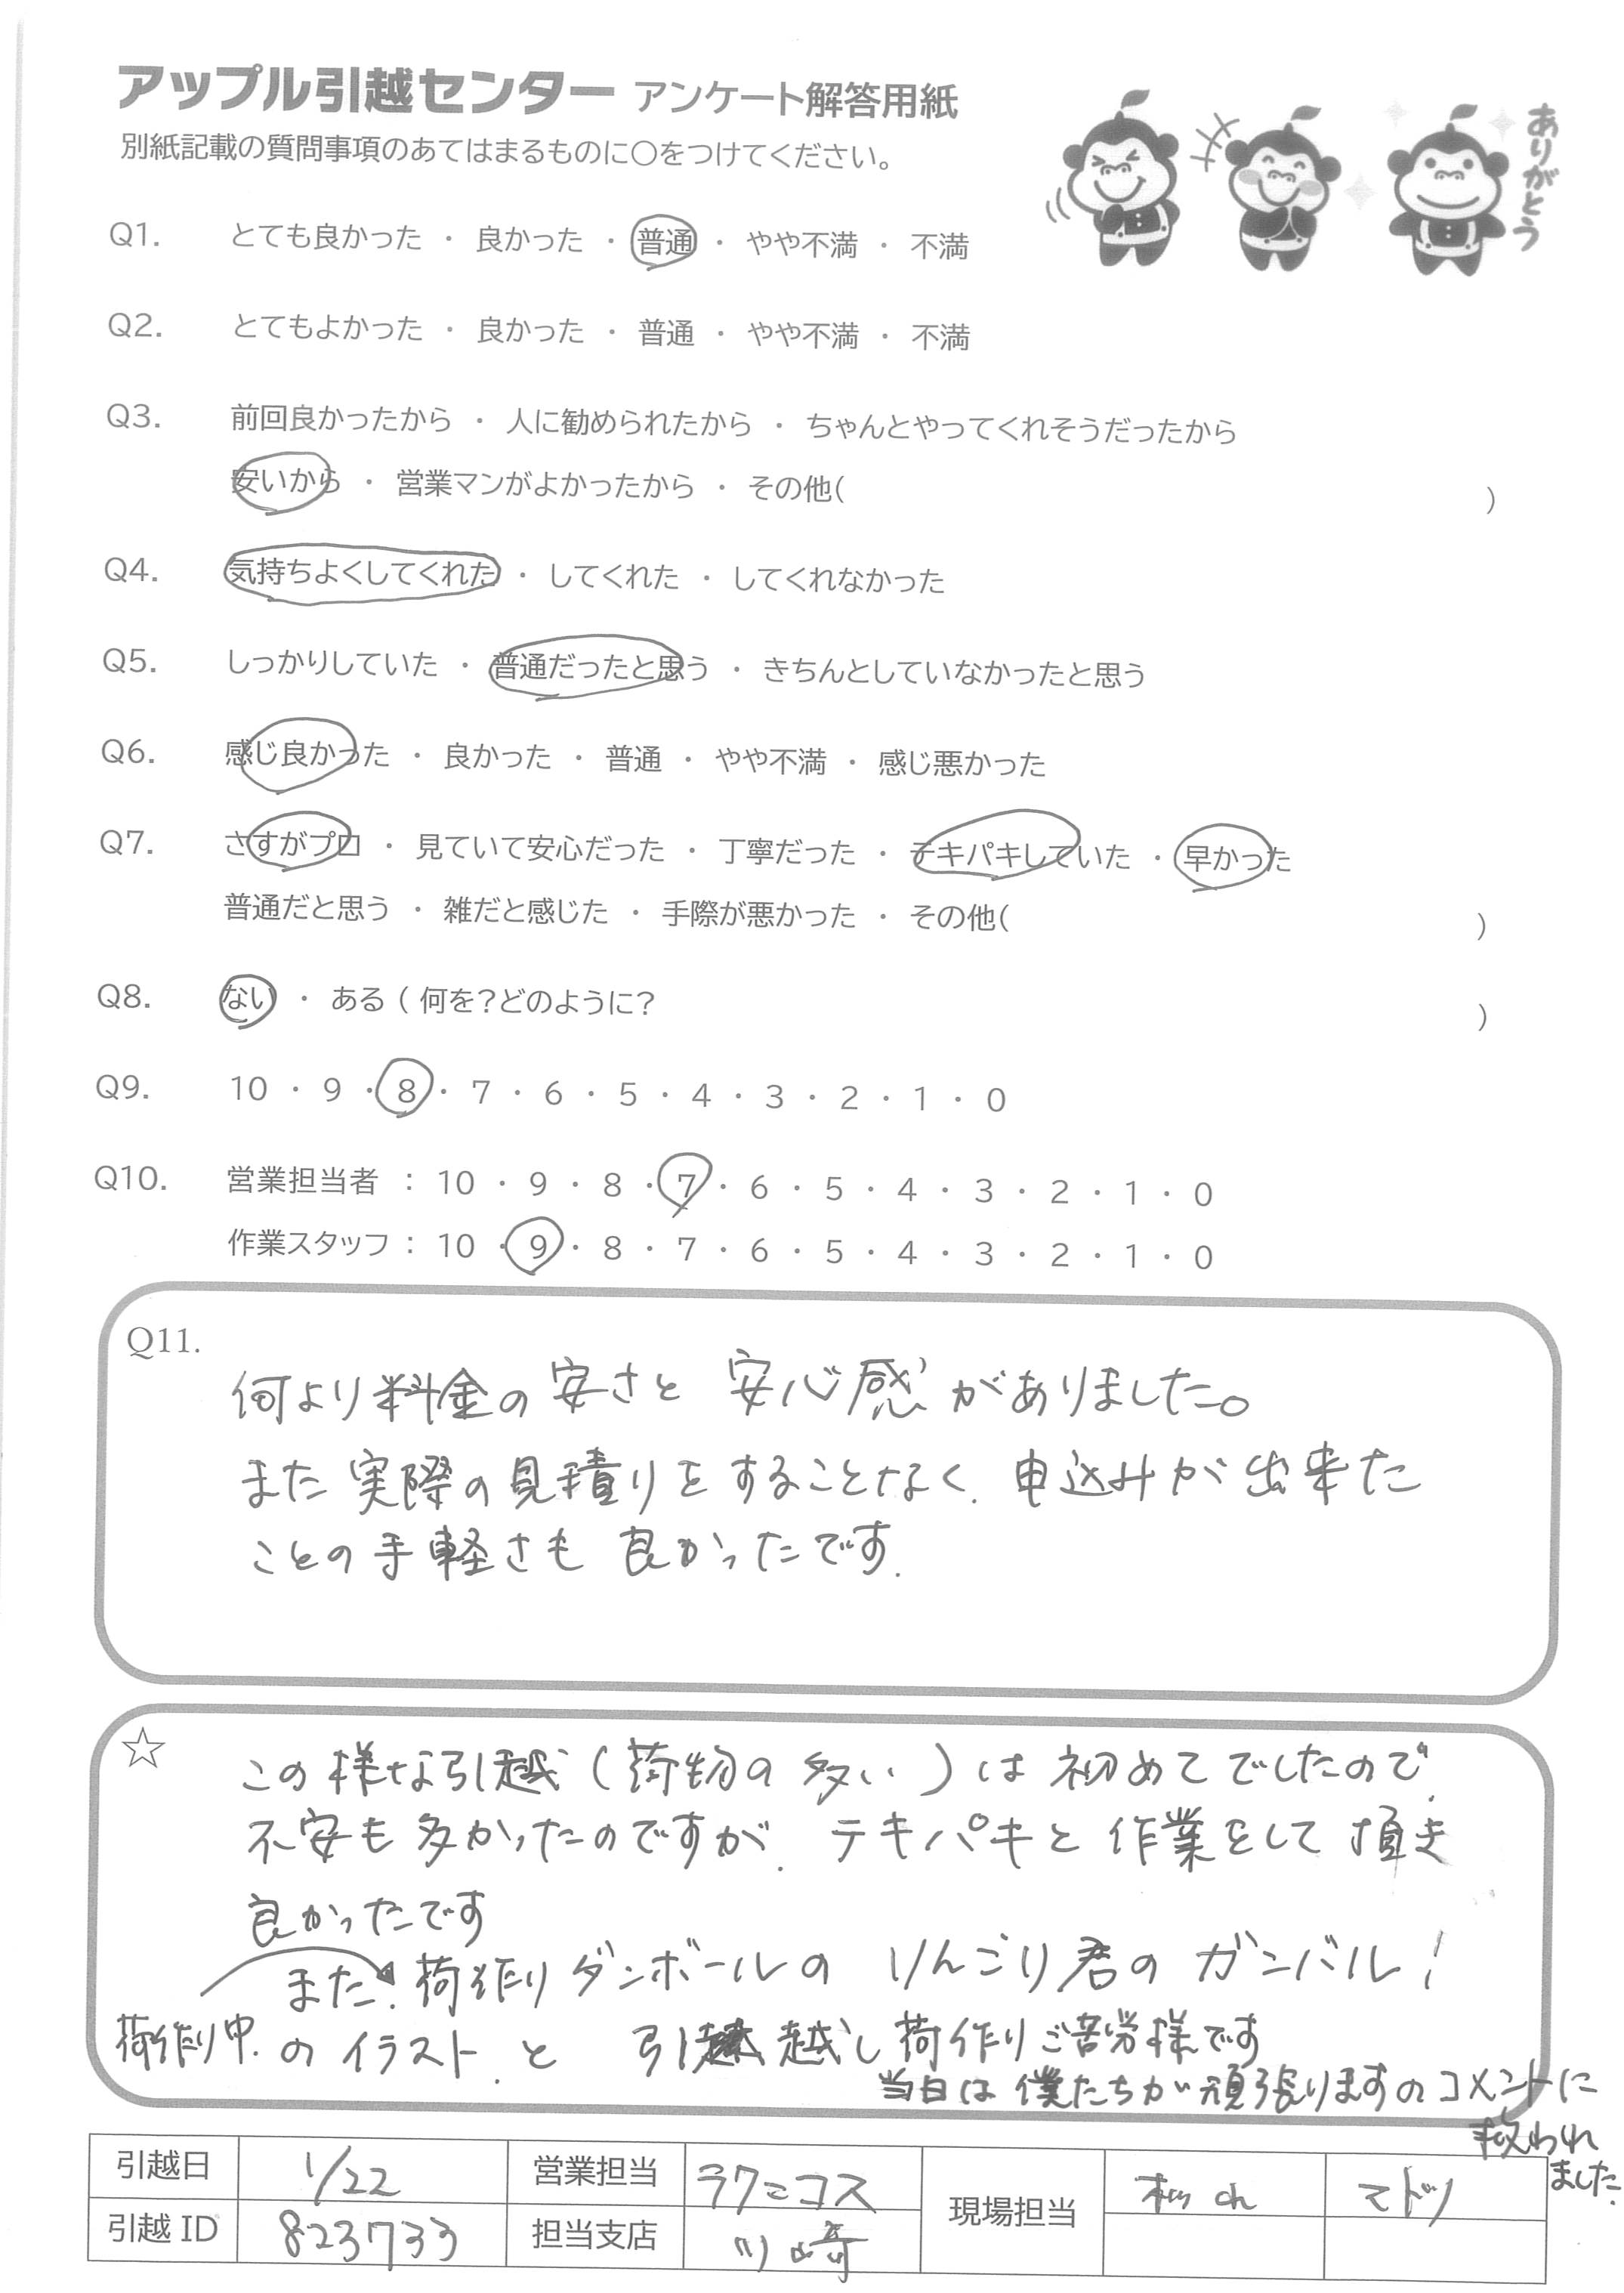 アップル引越センター アンケート解答用紙
別紙記載の質問事項のあてはまるものに○をつけてください。
ありがとう
Q1. とても良かった ・ 良かった ・ 普通 ・ やや不満 ・ 不満
Q2. とてもよかった ・ 良かった ・ 普通 ・ やや不満 ・ 不満
Q3. 前回良かったから ・ 人に勧められたから ・ ちゃんとやってくれそうだったから
安いから ・ 営業マンがよかったから ・ その他( )
Q4. 気持ちよくしてくれた ・ してくれた ・ してくれなかった
Q5. しっかりしていた ・ 普通だったと思う ・ きちんとしていなかったと思う
Q6. 感じ良かった ・ 良かった ・ 普通 ・ やや不満 ・ 感じ悪かった
Q7. さすがプロ ・ 見ていて安心だった ・ 丁寧だった ・ テキパキしていた ・ 早かった
普通だと思う ・ 雑だと感じた ・ 手際が悪かった ・ その他( )
Q8. ない ・ ある ( 何を?どのように? )
Q9. 10 ・ 9 ・ 8 ・ 7 ・ 6 ・ 5 ・ 4 ・ 3 ・ 2 ・ 1 ・ 0
Q10. 営業担当者 : 10 ・ 9 ・ 8 ・ 7 ・ 6 ・ 5 ・ 4 ・ 3 ・ 2 ・ 1 ・ 0
作業スタッフ : 10 ・ 9 ・ 8 ・ 7 ・ 6 ・ 5 ・ 4 ・ 3 ・ 2 ・ 1 ・ 0
Q11.
何より料金の安さと 安心感がありました。
また実際の見積りをすることなく、申込みが出来た
ことの手軽さも 良かったです.
☆
この様な引越(荷物の多い)は初めてでしたので、
不安も多かったのですが、テキパキと作業をして頂き
良かったです
また、荷作りダンボールの りんごり君の ガンバル!
荷作り中.のイラスト.と 引越し荷作りご苦労様です
当日は僕たちが頑張りますのコメントに
救われ
ました.
引越日 1/22 営業担当 ラクニコス 現場担当 マドツ
引越ID 823733 担当支店 川崎